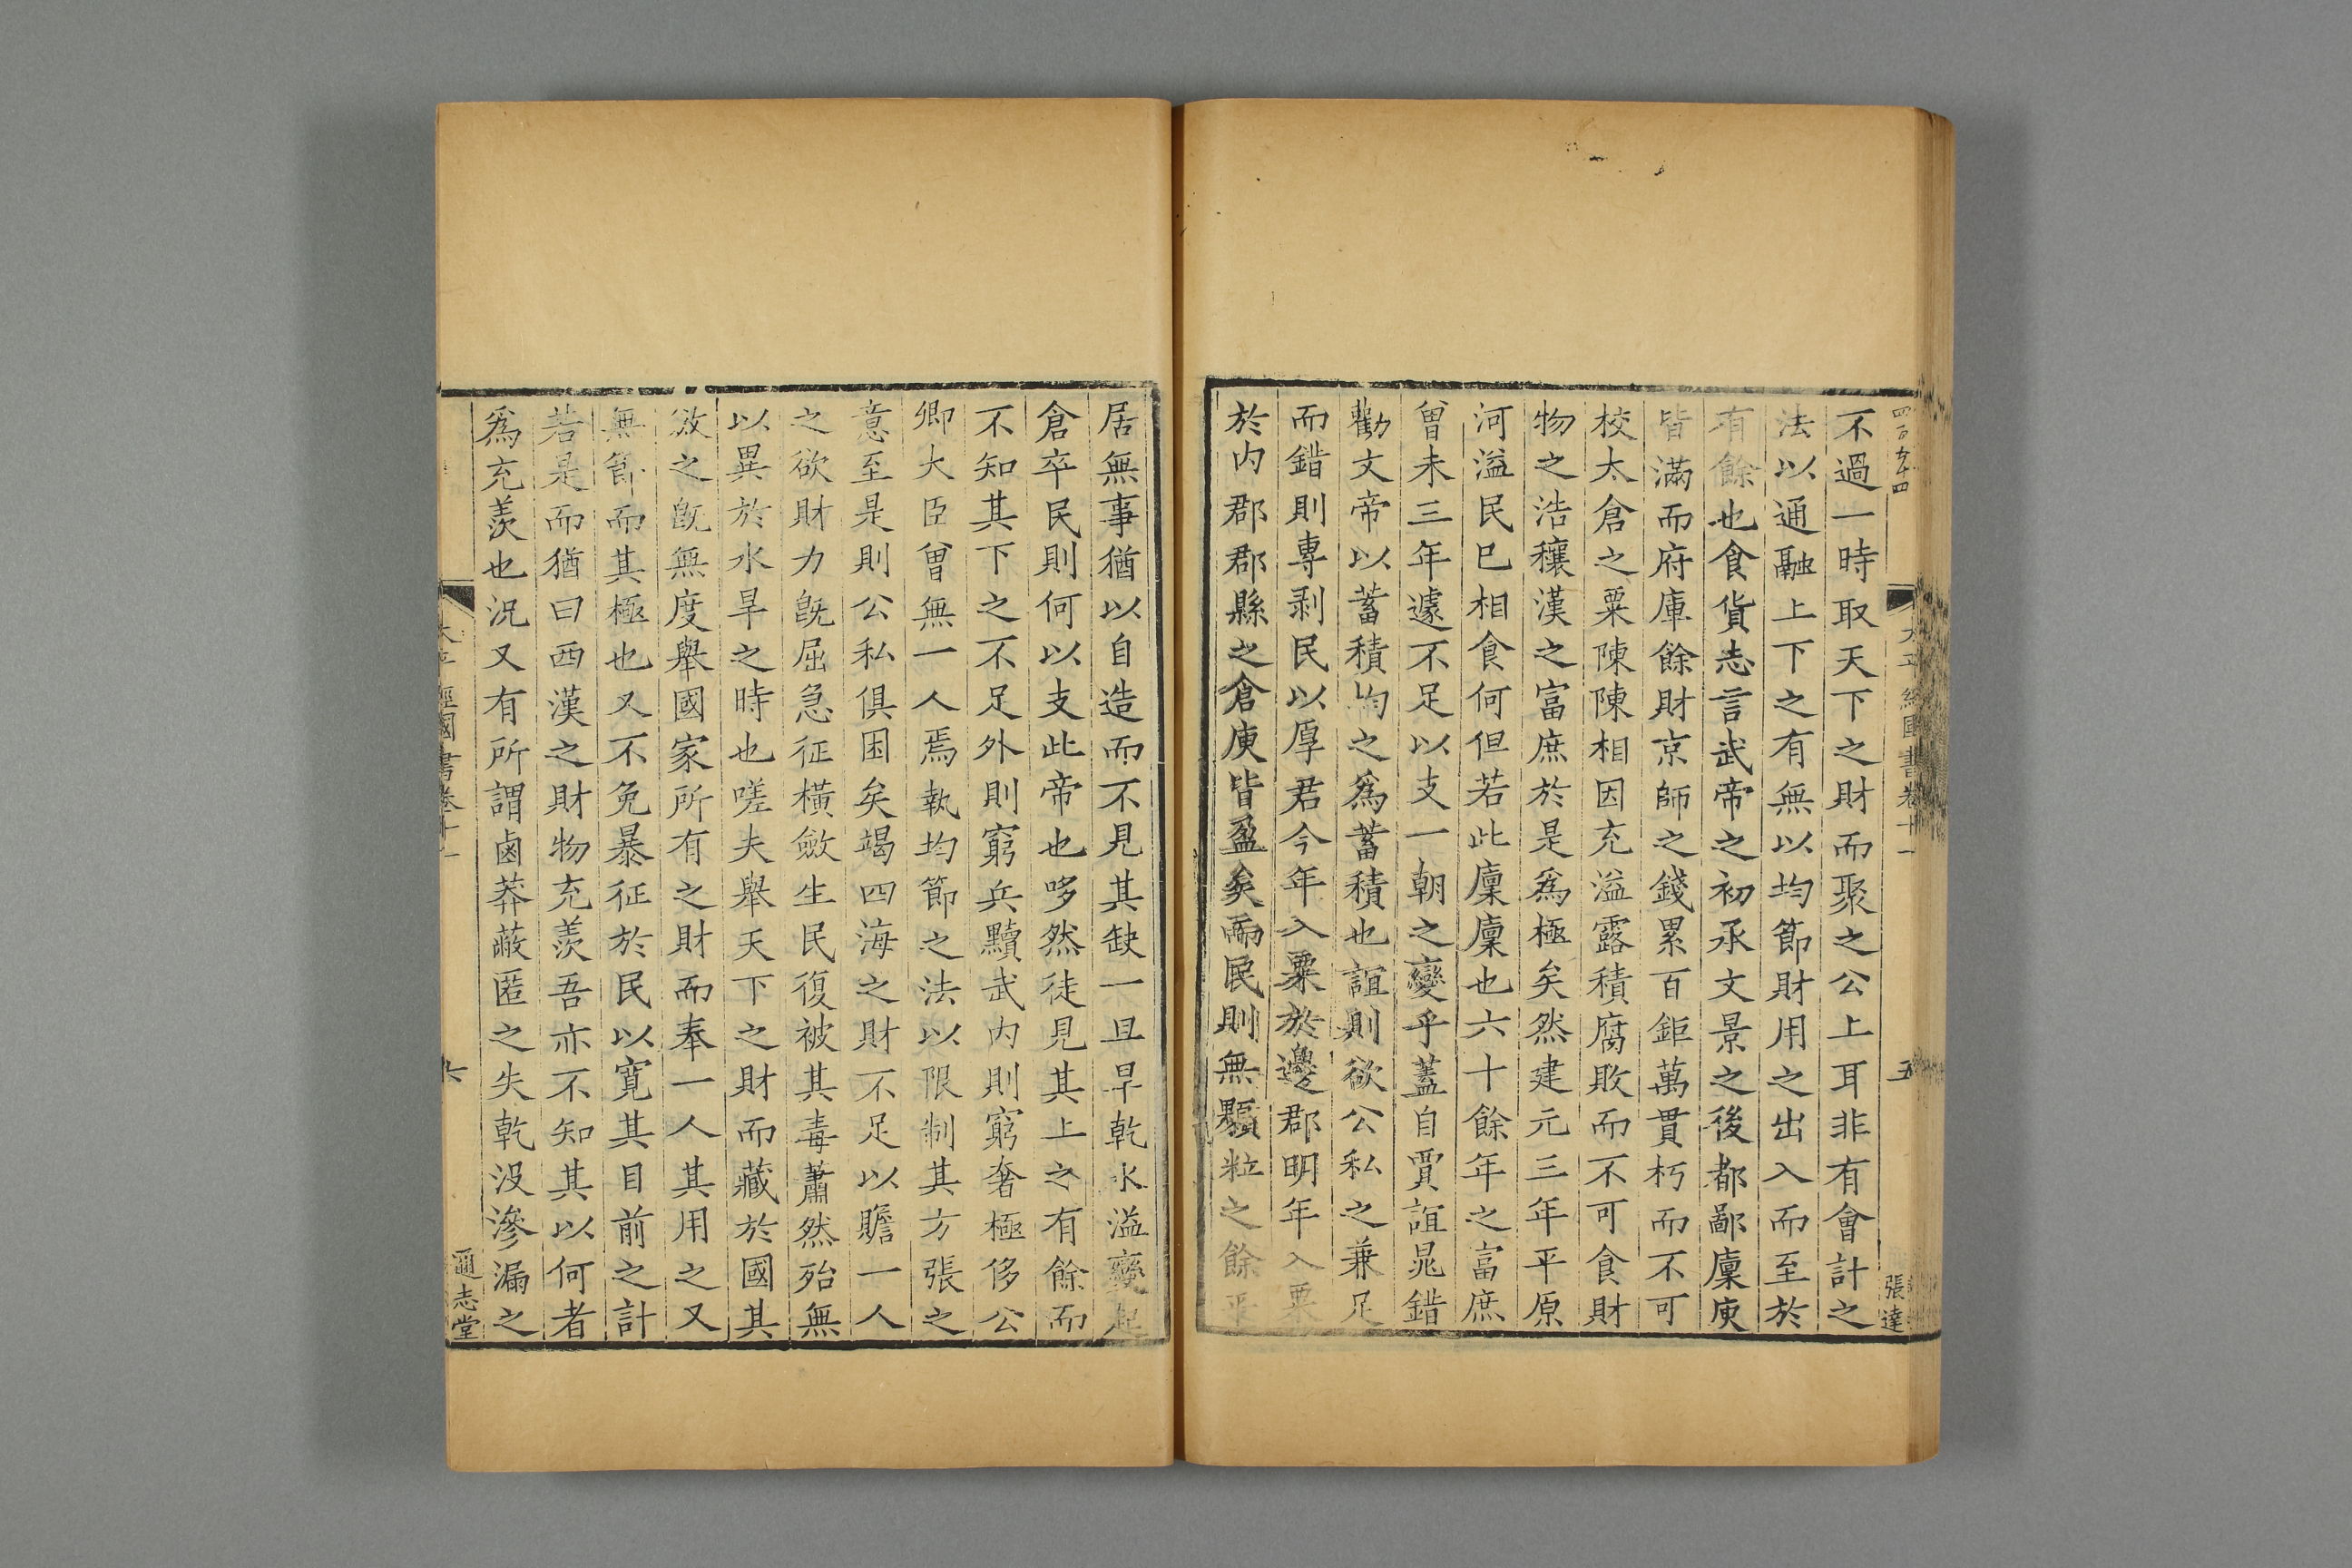 四百九十四
太平經國書卷十一
五
張達
不過一時取天下之財而聚之公上耳非有會計之
法以通融上下之有無以均節財用之出入而至於
有餘也食貨志言武帝之初承文景之後都鄙廩庾
皆滿而府庫餘財京師之錢累百鉅萬貫朽而不可
校太倉之粟陳陳相因充溢露積腐敗而不可食財
物之浩穰漢之富庶於是爲極矣然建元三年平原
河溢民已相食何但若此廩廩也六十餘年之富庶
曾未三年遽不足以支一朝之變乎蓋自賈誼晁錯
勸文帝以蓄積均之爲蓄積也誼則欲公私之兼足
而錯則專剥民以厚君今年入粟於邊郡明年入粟
於內郡郡縣之倉庾皆盈矣而民則無顆粒之餘平
居無事猶以自造而不見其缺一旦旱乾水溢變起
倉卒民則何以支此帝也哆然徒見其上之有餘而
不知其下之不足外則窮兵黷武内則窮奢極侈公
卿大臣曾無一人焉執均節之法以限制其方張之
意至是則公私俱困矣竭四海之財不足以贍一人
之欲財力旣屈急征橫斂生民復被其毒蕭然殆無
以異於水旱之時也嗟夫舉天下之財而藏於國其
斂之旣無度舉國家所有之財而奉一人其用之又
無節而其極也又不免暴征於民以寬其目前之計
若是而猶曰西漢之財物充羨吾亦不知其以何者
爲充羨也況又有所謂鹵莽蔽匿之失乾没滲漏之
太平經國書卷十一
六
通志堂